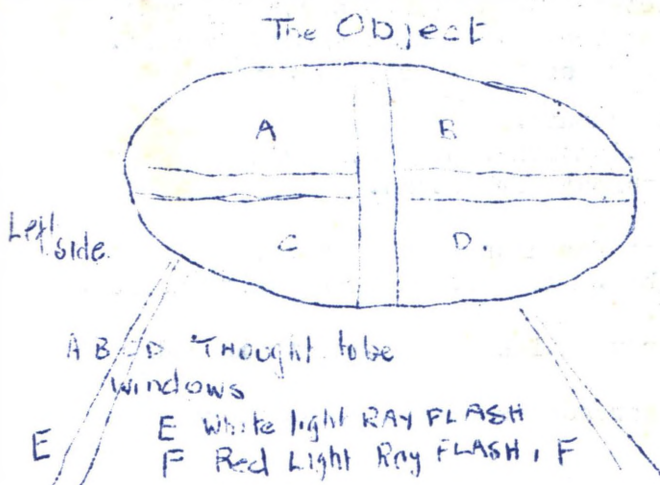 The Object
A B
Left side.
C D.
A B C D Thought to be
windows
E White light RAY FLASH
E F Red Light Ray FLASH, F